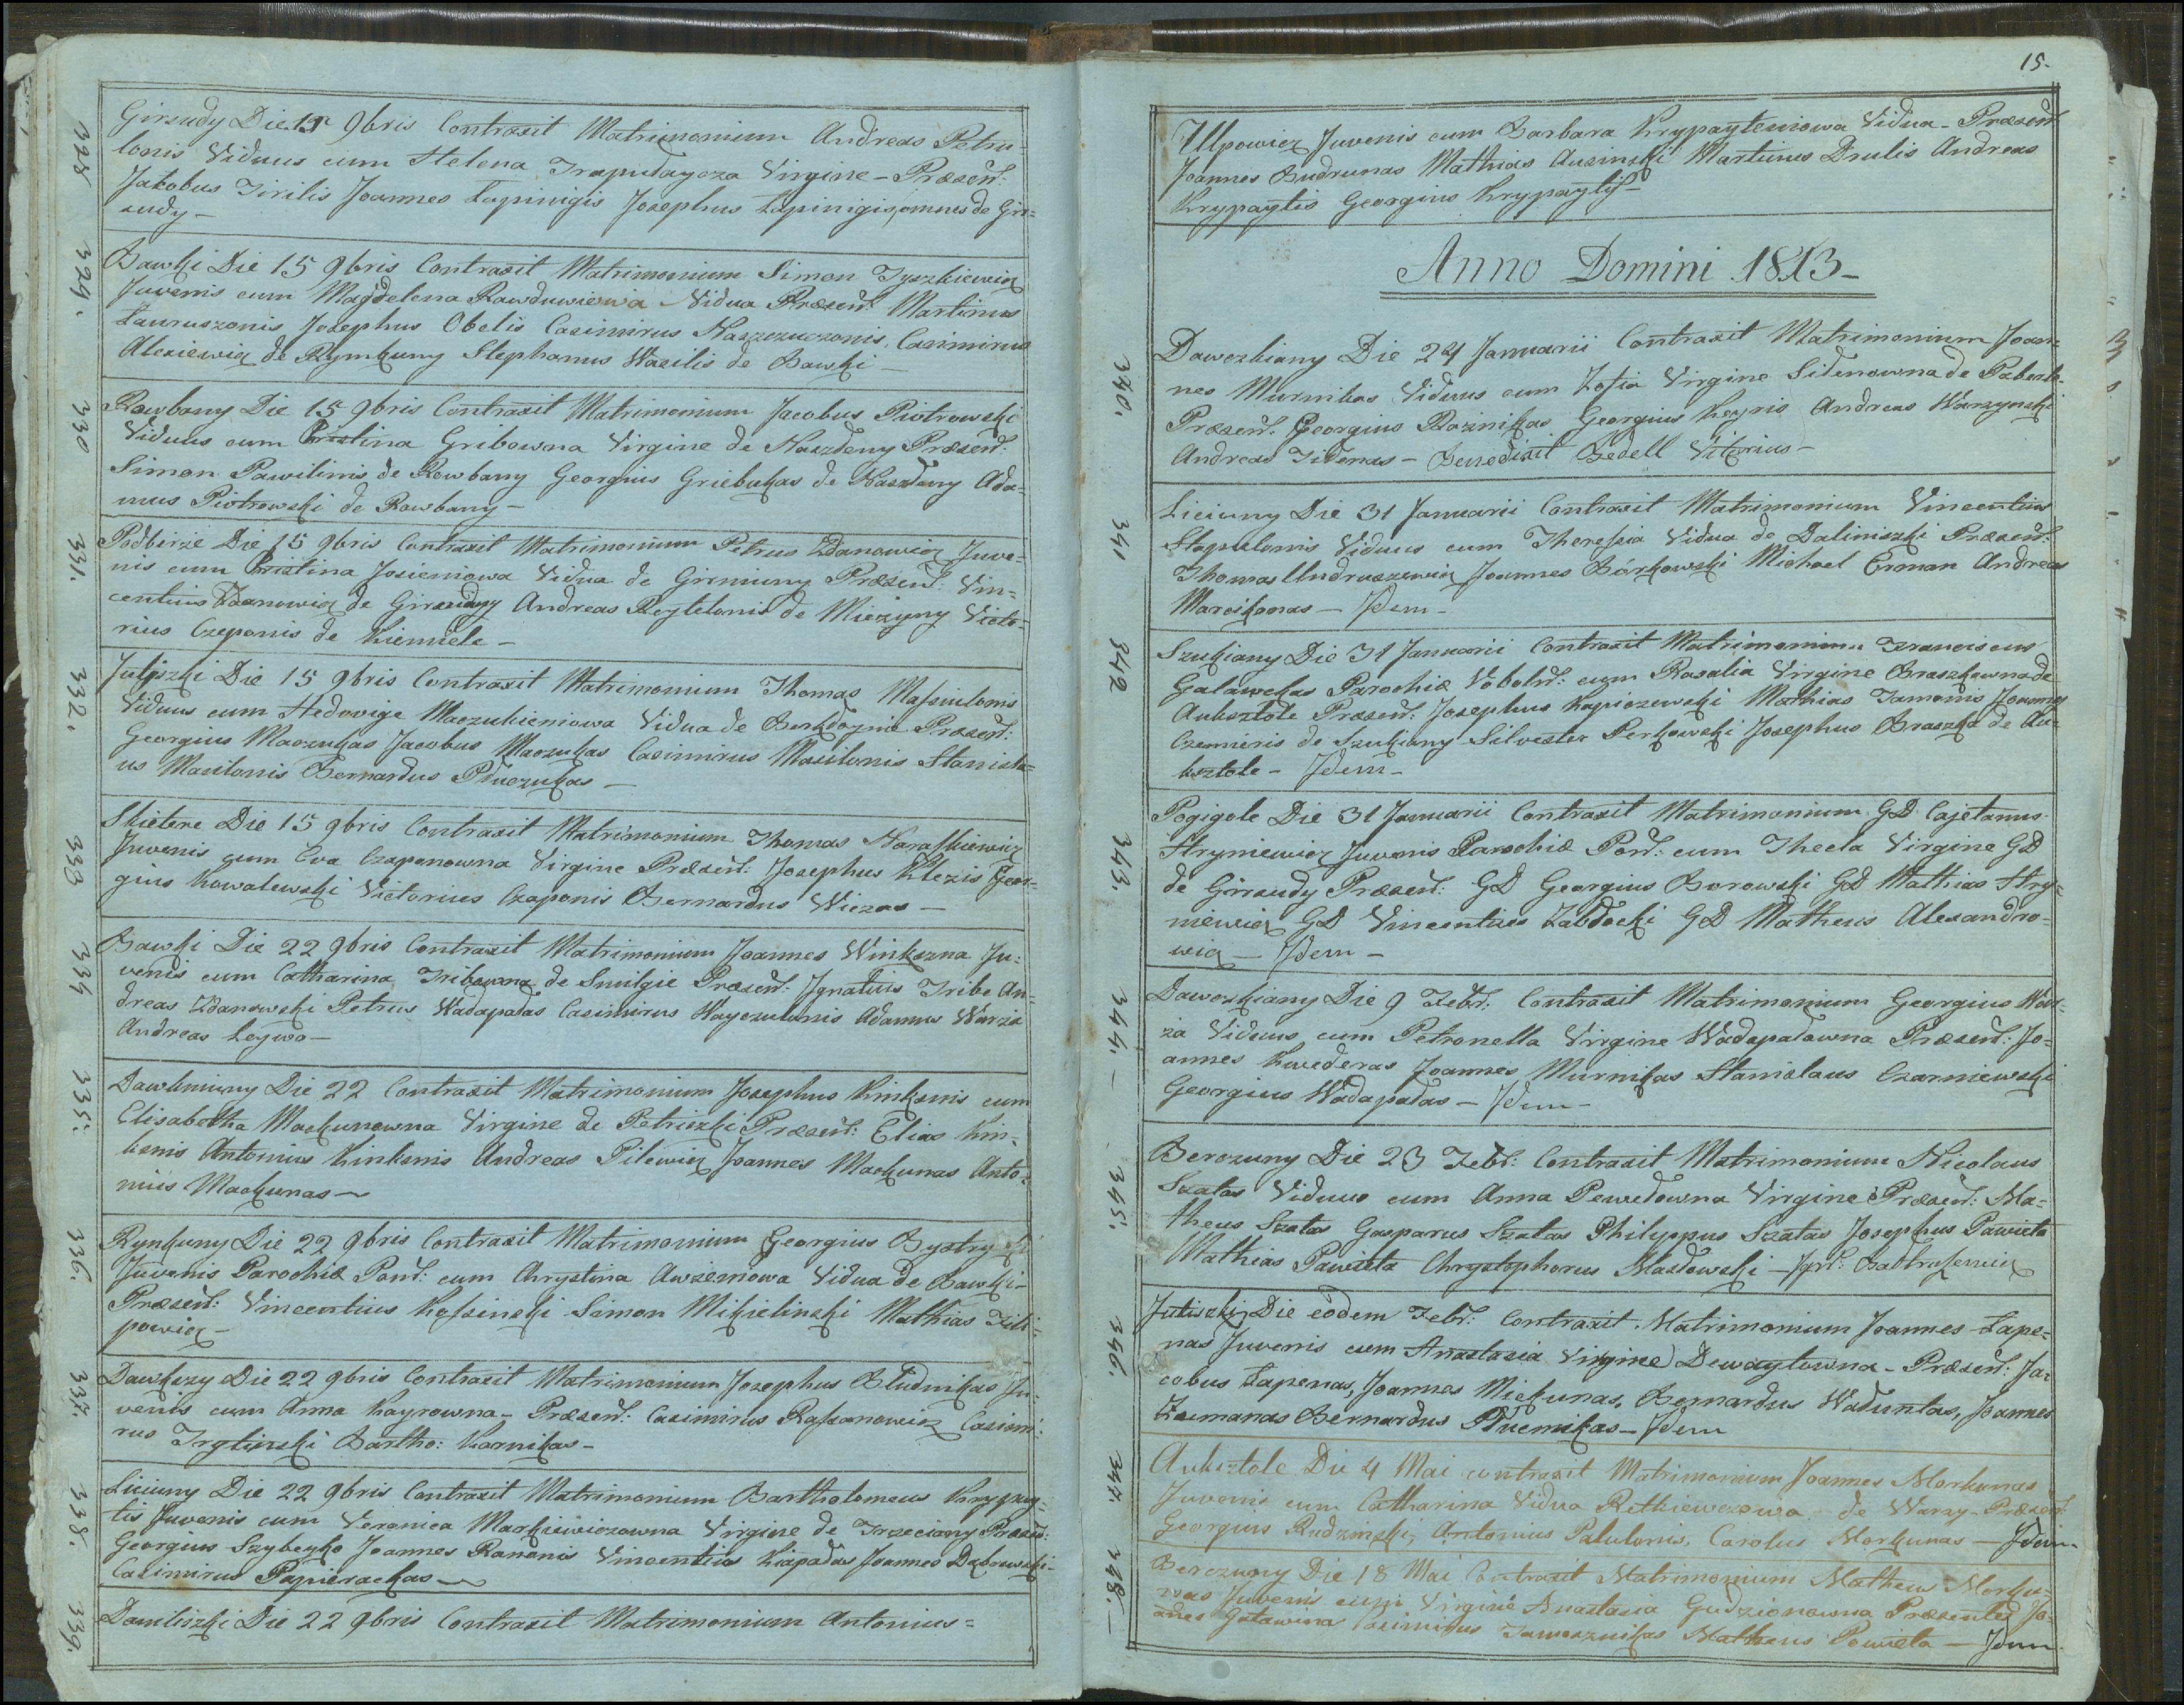 328
Girsudy Die 15 9bris Contraxit Matrimonium Andreas Petru-
lonis Viduus cum Helena Trapulaycza Virgine - Præsent:
Jakobus Jirilis Joannes Łapinigis Josephus Łapinigis omnes de Gir=
sudy -
329.
Bawki Die 15 9bris Contraxit Matrimonium Simon Tyszkiewicz
Juvenis cum Magdelena Rawduwiewa Vidua Præsent: Martinus
Ławruszonis Josephus Obelis Casimirus Naszczuczonis, Casimirus
Alexiewicz de Rymkuny Stephanus Wasilis de Bawski -
330
Rawbany Die 15 9bris Contraxit Matrimonium Jacobus Piotrowski
Viduus cum Cristina Gribowna Virgine de Naszdeny Præsent:
Simon Pawilinis de Rewbany Georgius Griebukas de Naszdany Ada=
mus Piotrowski de Rawbany -
331.
Podbirze Die 15 9bris Contraxit Matrimonium Petrus Zdanowicz Juve=
nis cum Cristina Josieniowa Vidua de Griniuny Præsent: Vin=
centius Zdanowicz de Girsudzy Andreas Reytelonis de Mieziuny Victo-
rius Czeponis de Kiemiele -
332.
Jutiszki Die 15 9bris Contraxit Matrimonium Thomas Massiulonis
Viduus cum Hedovige Maczukieniowa Vidua de Berkdoynie Præsent:
Georgius Maczukas Jacobus Maczukas Casimirus Masilonis Stanisla=
us Masilonis Bernardus Pluczukas -
333
Skietere Die 15 9bris Contraxit Matrimonium Thomas Naraskiewicz
Juvenis cum Eva Czaponowna Virgine Præsent: Josephus Klezis Geor=
gius Kowalewski Victorius Czaponis Bernardus Wiezas -
334
Bawki Die 22 9bris Contraxit Matrimonium Joannes Winkszna Ju=
venis cum Catharina Tribowna de Smilgie Præsent: Ignatius Tribe An=
dreas Zdanowski Petrus Wadapalas Casimirus Wayczulonis Adamus Warza
Andreas Leywa -
335.
Dawkniuny Die 22 Contraxit Matrimonium Josephus Kinksnis cum
Elisabetha Mackunowna Virgine de Petriszki Præsent: Elias Kin=
ksnis Antonius Kinksnis Andreas Pilewicz Joannes Mackunas Anto=
nius Mackunas -
336.
Rynkuny Die 22 9bris Contraxit Matrimonium Georgius Bystrycki
Juvenis Parochiæ Pont: cum Chrystina Awizeniowa Vidua de Bawski -
Præsent: Vincentius Kossinski Simon Mikielinski Mathias Fili=
powicz -
337.
Dawkszy Die 22 9bris Contraxit Matrimonium Josephus Bludnikas Ju-
venis cum Anna Kayrowna - Præsent: Casimirus Rassanowicz Casimi:
rus Tryliński Bartho: Karnikas -
338.
Liciuny Die 22 9bris Contraxit Matrimonium Bartholomeus Krypay=
tis Juvenis cum Veronica Markiewiczowna Virgine de Trzeciany Præsent:
Georgius Szybeyko Joannes Rananis Vincentius Kiapadas Joannes Dabrowski -
Casimirus Papierackas -
339.
Daniliszki Die 22 9bris Contraxit Matrimonium Antonius =
15.
Ulpowicz Juvenis cum Barbara Krypayteniowa Vidua - Præsent
Joannes Budrunas Mathias Ausinski Martinus Drulis Andreas
Krypaytis Georgius Krypaytis -
Anno Domini 1813 -
340.
Dawczkiany Die 24 Januarii Contraxit Matrimonium Joan-
nes Murnikas Viduus cum Zofia Virgine Sidenowna de Paberle-
Præsent: Georgius Boznikas Georgius Keyris Andreas Warzynski
Andreas Sidenas - Benedixit Bedell Viterius -
341
Liciuny Die 31 Januarii Contraxit Matrimonium Vincentius
Stapulonis Viduus cum Theressia Vidua de Daliniszki Præsent:
Thomas Undruszewicz Joannes Borkowski Michael Erman Andreas
Marcikonas - Idem -
342
Szukiany Die 31 Januarii Contraxit Matrimonium Franciscus
Galawckas Parochiæ Vobolnt: cum Rosalia Virgine Braszkowna de
Auksztole Præsent: Josephus Kapiczewski Mathias Jamonis Joannes
Czemieris de Szukiany Silvester Perkowski Josephus Braszka de Au=
ksztole - Idem -
343.
Pogigole Die 31 Januarii Contraxit Matrimonium GD Cajetanus
Hryniewicz Juvenis Parochiæ Pont: cum Thecla Virgine GD
de Girsudy Præsent: GD Georgius Borowski GD Mathias Hry=
niewicz GD Vincentius Zabłocki GD Matheus Alexandro-
wicz - Idem -
344. -
Dawczkiany Die 9 Febr: Contraxit Matrimonium Georgius War-
za Viduus cum Petronella Virgine Wadapalawna Præsent: Jo=
annes Kwederas Joannes Murnikas Stanislaus Czarniewski
Georgius Wadapalas - Idem -
345.
Berczuny Die 23 Febr: Contraxit Matrimonium Nicolaus
Szatas Viduus cum Anna Pewedowna Virgine Præsent: Ma=
theus Szatas Gasparus Szatas Philippus Szatas Josephus Pawieta
Mathias Pawieta Chrystophorus Masłowski -
346.
Jutiszki Die eodem Febr: Contraxit Matrimonium Joannes Łape=
nas Juvenis cum Anastasia Virgine Dewaytowna - Præsent: Ja=
cobus Łapenas, Joannes Mickunas, Bernardus Waduntas, Joannes
Zaemanas Bernardus Pluernikas - Idem
347.
Auksztole Die 4 Mai contraxit Matrimonium Joannes Morkunas
Juvenis cum Catharina Vidua Retkiewczowa de Warzy - Præsent:
Georgius Rudzinski, Antonius Palulonis, Carolus Morkunas - Idem
348. -
Berczuny Die 18 Mai Contraxit Matrimonium Matheus Morku-
nas Juvenis cum Virgine Anastasia Gudzionowna Præsentes Jo-
anes Gatawina Casimirus Jawesznikas Matheus Powieta - Idem